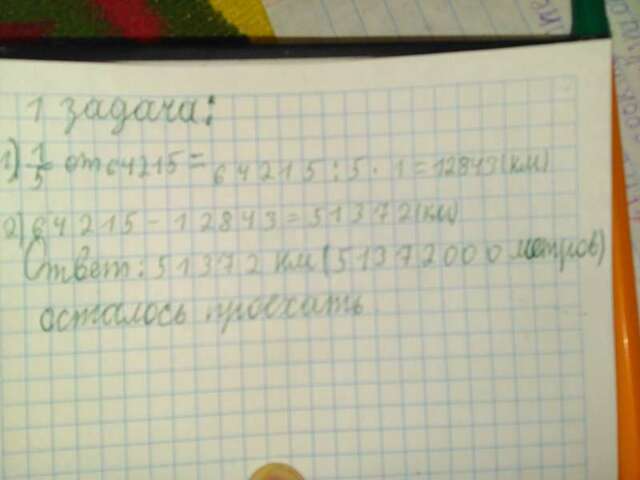 1 задача:
1) 1/5 от 64215 = 64215 : 5 · 1 = 12843 (км)
2) 64215 - 12843 = 51372 (км)
Ответ: 51372 км (51372000 метров)
осталось проехать